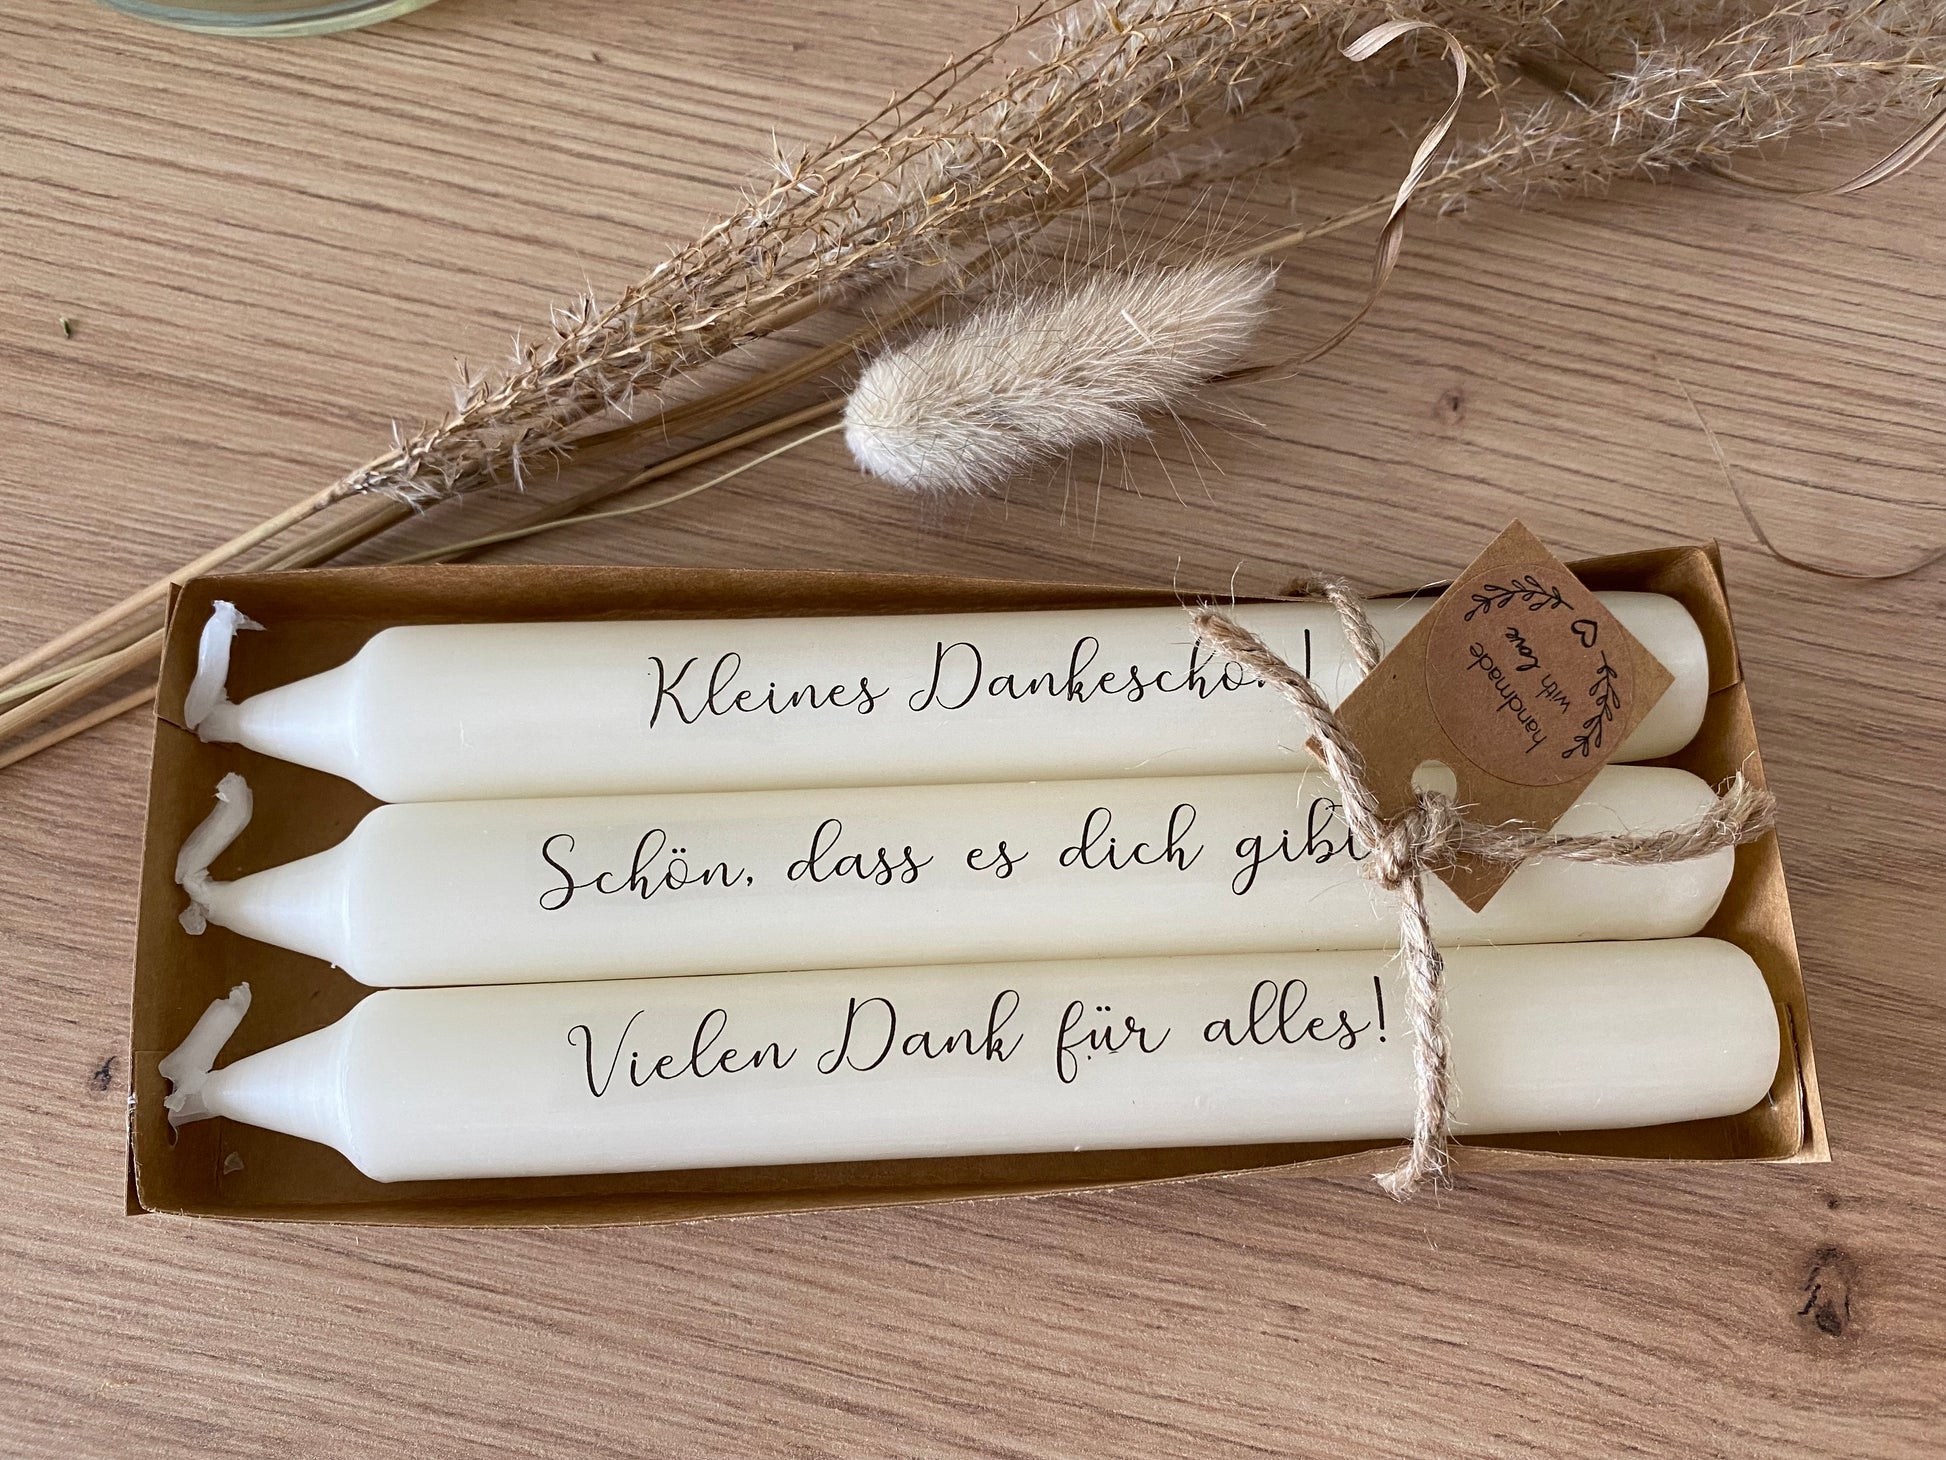 Kleines Dankeschön!
Schön, dass es dich gibt
Vielen Dank für alles!
handmade
with love